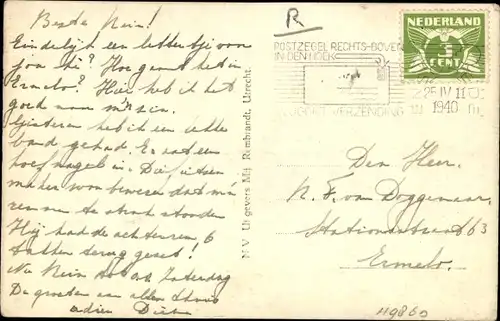 Beste Rein!
Eindelijk een lettertje voor
jou hé? Hoe gaat het in
Ermelo? Hier heb ik het
goed naar m'n zin.
Gisteren heb ik een lekke
band gehad. Er zat een
hoefnagel in. Die fietsen
maker
bewezen dat m'n
remmen te strak stonden
Hij had de achterrem 6
tanden terug gezet!
Nu Rein tot Zaterdag
De groeten aan allen thuis
R
N.V. Uitgevers Mij. Rembrandt, Utrecht.
POSTZEGEL RECHTS-BOVEN
IN DEN HOEK
VERZENDING
25.IV 11
1940
NEDERLAND
3
CENT
Den Heer.
N. F. van Doggenaar.
Stationsstraat 63
Ermelo.